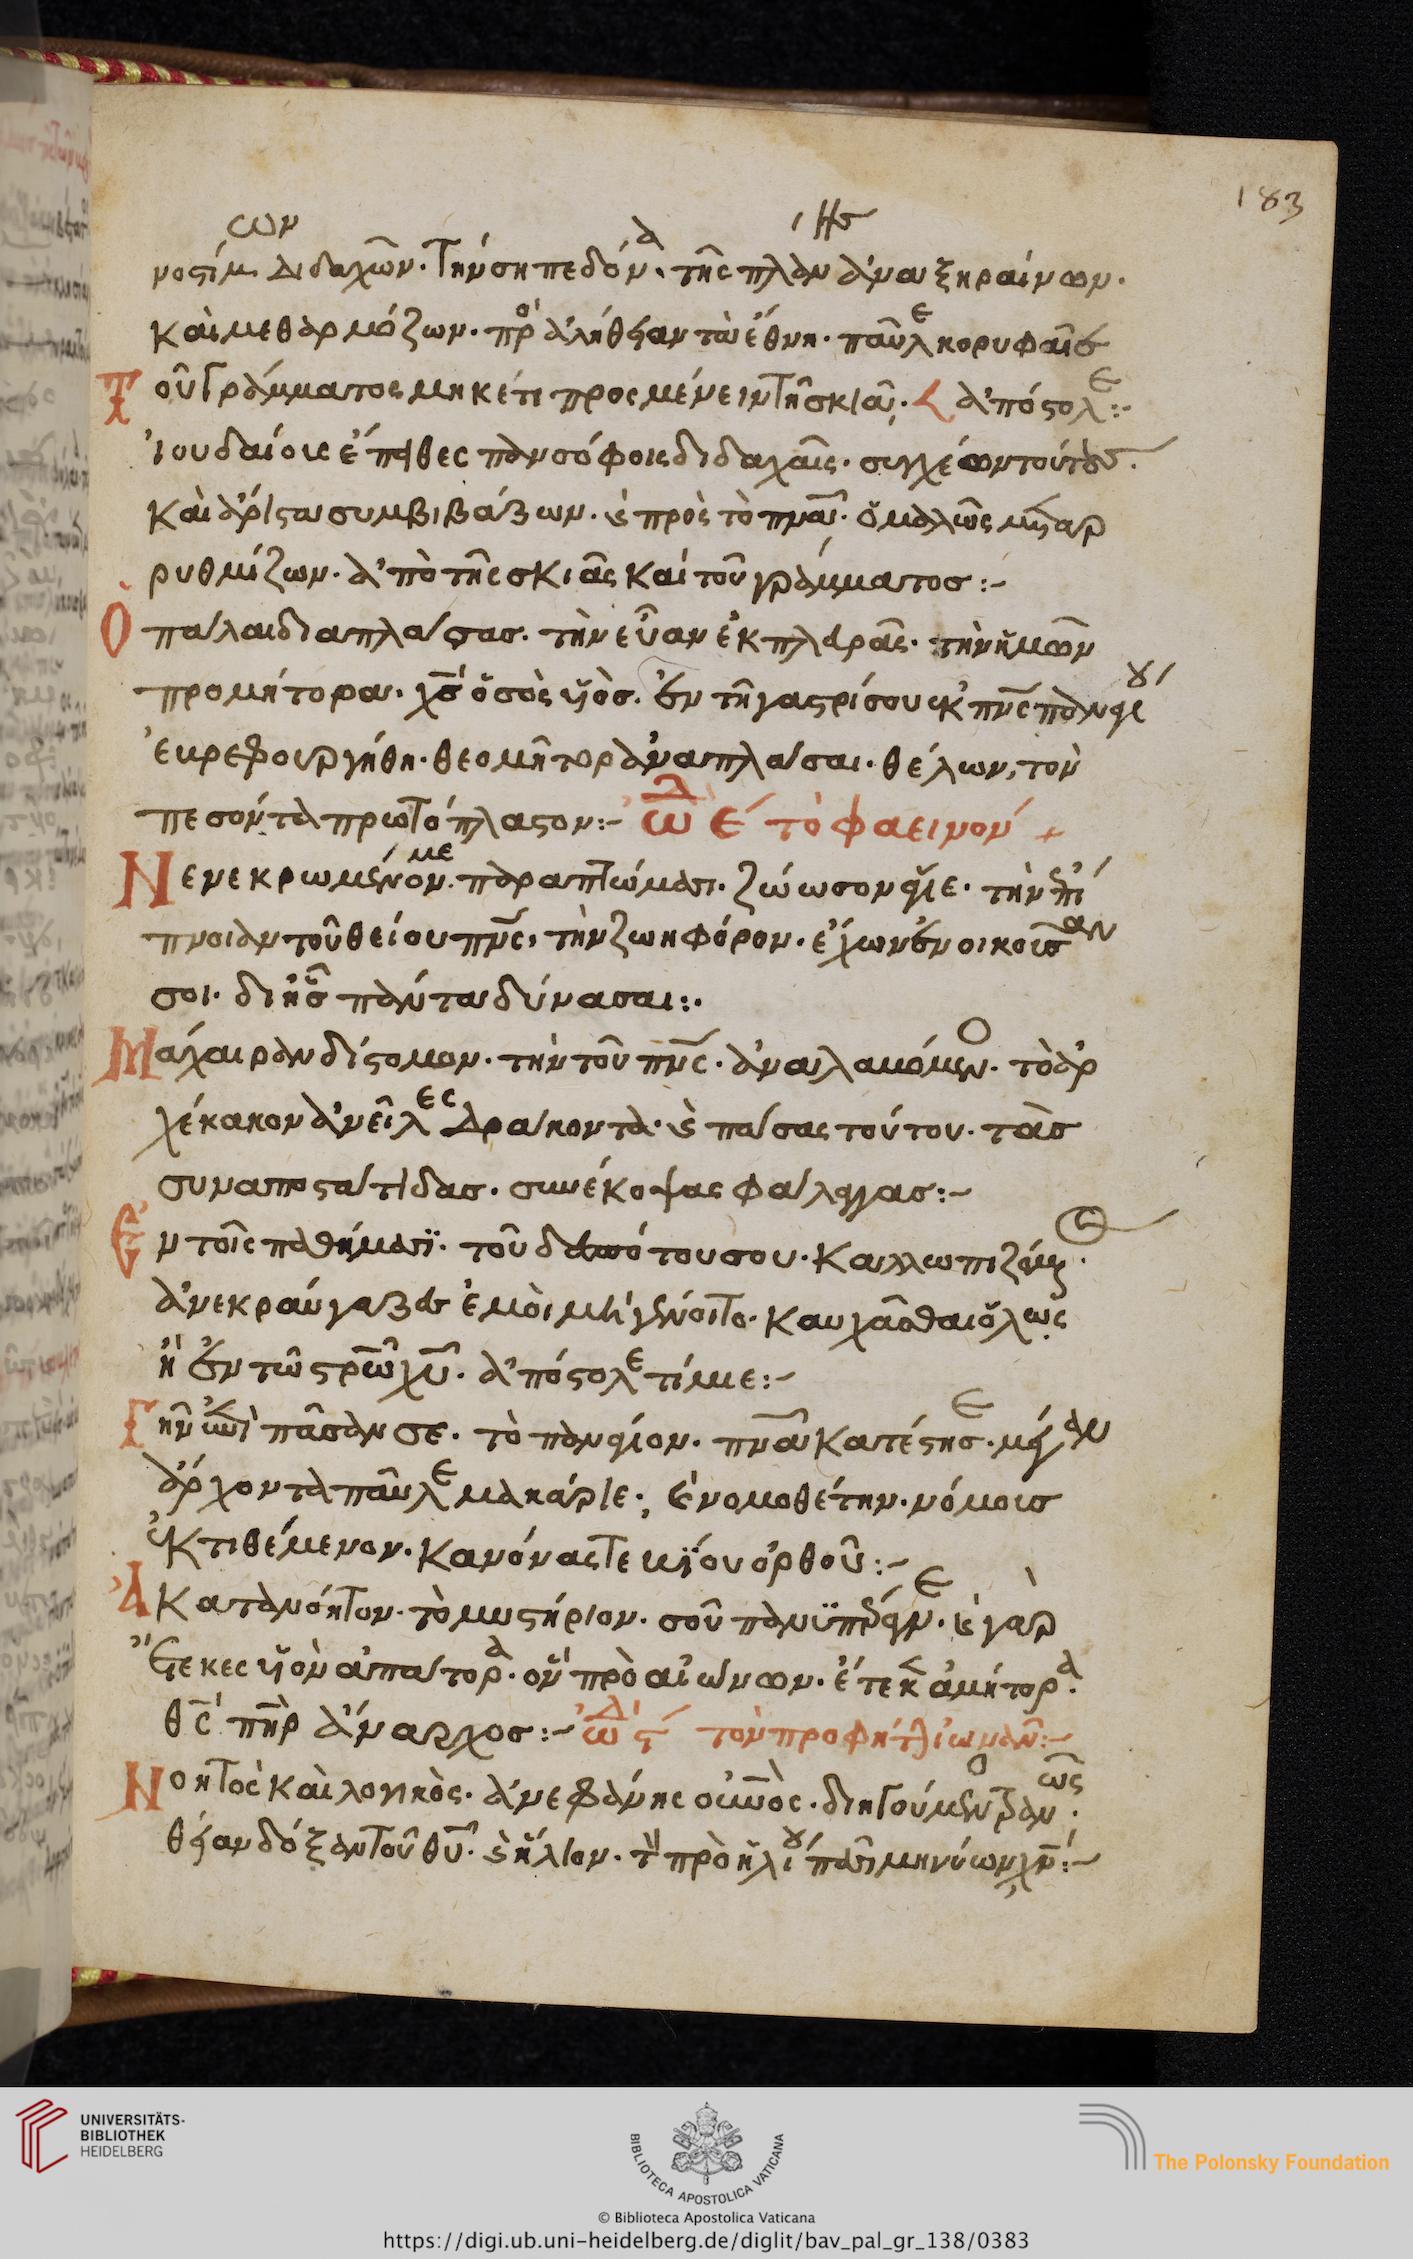 183
νοστίμων διδαχῶν. τὴν σηπεδόνα. τῆς πλάνης ἀναξηραίνων.
καὶ μεθαρμόζων. πρὸς ἀλήθειαν τὰ ἔθνη. παῦλε κορυφαῖε
Τοῦ γράμματος μηκέτι προσμένειν τῇ σκιᾷ. ἀπόστολε:-
ἰουδαίοις ἐπῆλθες πανσόφοις διδαχαῖς. συγχέων τούτους.
καὶ ἄριστα συμβιβάζων. καὶ πρὸς τὸ πνα. ὁμαλῶς
ρυθμίζων. ἀπὸ τῆς σκιᾶς καὶ τοῦ γράμματος:-
Ὁ πάλαι διαπλάσας. τὴν εὔαν ἐκ πλευρᾶς. τὴν ἡμῶν
προμήτορα. χς ὁ σὸς υἱὸς. ἐν τῇ γαστρί σου ἐκ πνς παναγίου
ἐβρεφουργήθη. θεομῆτορ ἀναπλάσαι. θέλων, τὸν
πεσόντα πρωτόπλαστον:- ὠδ ε τὸ φαεινὸν
Νενεκρωμένον με. παραπτώμασι. ζώωσον ἅγιε. τὴν ἐπί
πνοιαν τοῦ θείου πνς, τὴν ζωηφόρον. ἔχων ἐνοικοῦσαν
σοι. δι ἧς πάντα δύνασαι:.
Μάχαιραν δίστομον. τὴν τοῦ πνς. ἀναλαβόμενος. τὸν ἀρ
χέκακον ἀνεῖλες δράκοντα. καὶ πάσας τούτου. τὰς
συναποστάτιδας. συνέκοψας φάλαγγας:-
Ἐν τοῖς παθήμασι. τοῦ δεσπότου σου. καλλωπιζόμενος.
ἀνεκραύγαζες ἐμοὶ μὴ γένοιτο. καυχᾶσθαι ὅλως
ἢ ἐν τῷ στρω χυ. ἀπόστολε τίμιε:-
Γῆν ἐπὶ πᾶσαν σε. τὸ πανάγιον. πνα κατέστησε. μέγαν
ἄρχοντα παῦλε μακάριε. καὶ νομοθέτην. νόμους
ἐκτιθέμενον. κανόνας τε βίου ὀρθοῦ:-
Ἀκατανόητον. τὸ μυστήριον. σοῦ παναγνε. καὶ γὰρ
ἔτεκες υἱὸν ἀπάτορα. ὃν πρὸ αἰώνων. ἔτεκεν ἀμήτορα.
θς πηρ ἄναρχος:- ὠδ ς τὸν προφήτην ἰωνᾶν:-
Νοητὸς καὶ λογικὸς. ἀνεφάνης οὐνὸς. διηγούμενος τρανῶς.
θείαν δόξαν τοῦ θυ. καὶ ἥλιον. τὸν πρὸ ἡλίου πᾶσι μηνύων χν:-
UNIVERSITÄTS-
BIBLIOTHEK
HEIDELBERG
BIBLIOTECA APOSTOLICA VATICANA
The Polonsky Foundation
© Biblioteca Apostolica Vaticana
https://digi.ub.uni-heidelberg.de/diglit/bav_pal_gr_138/0383